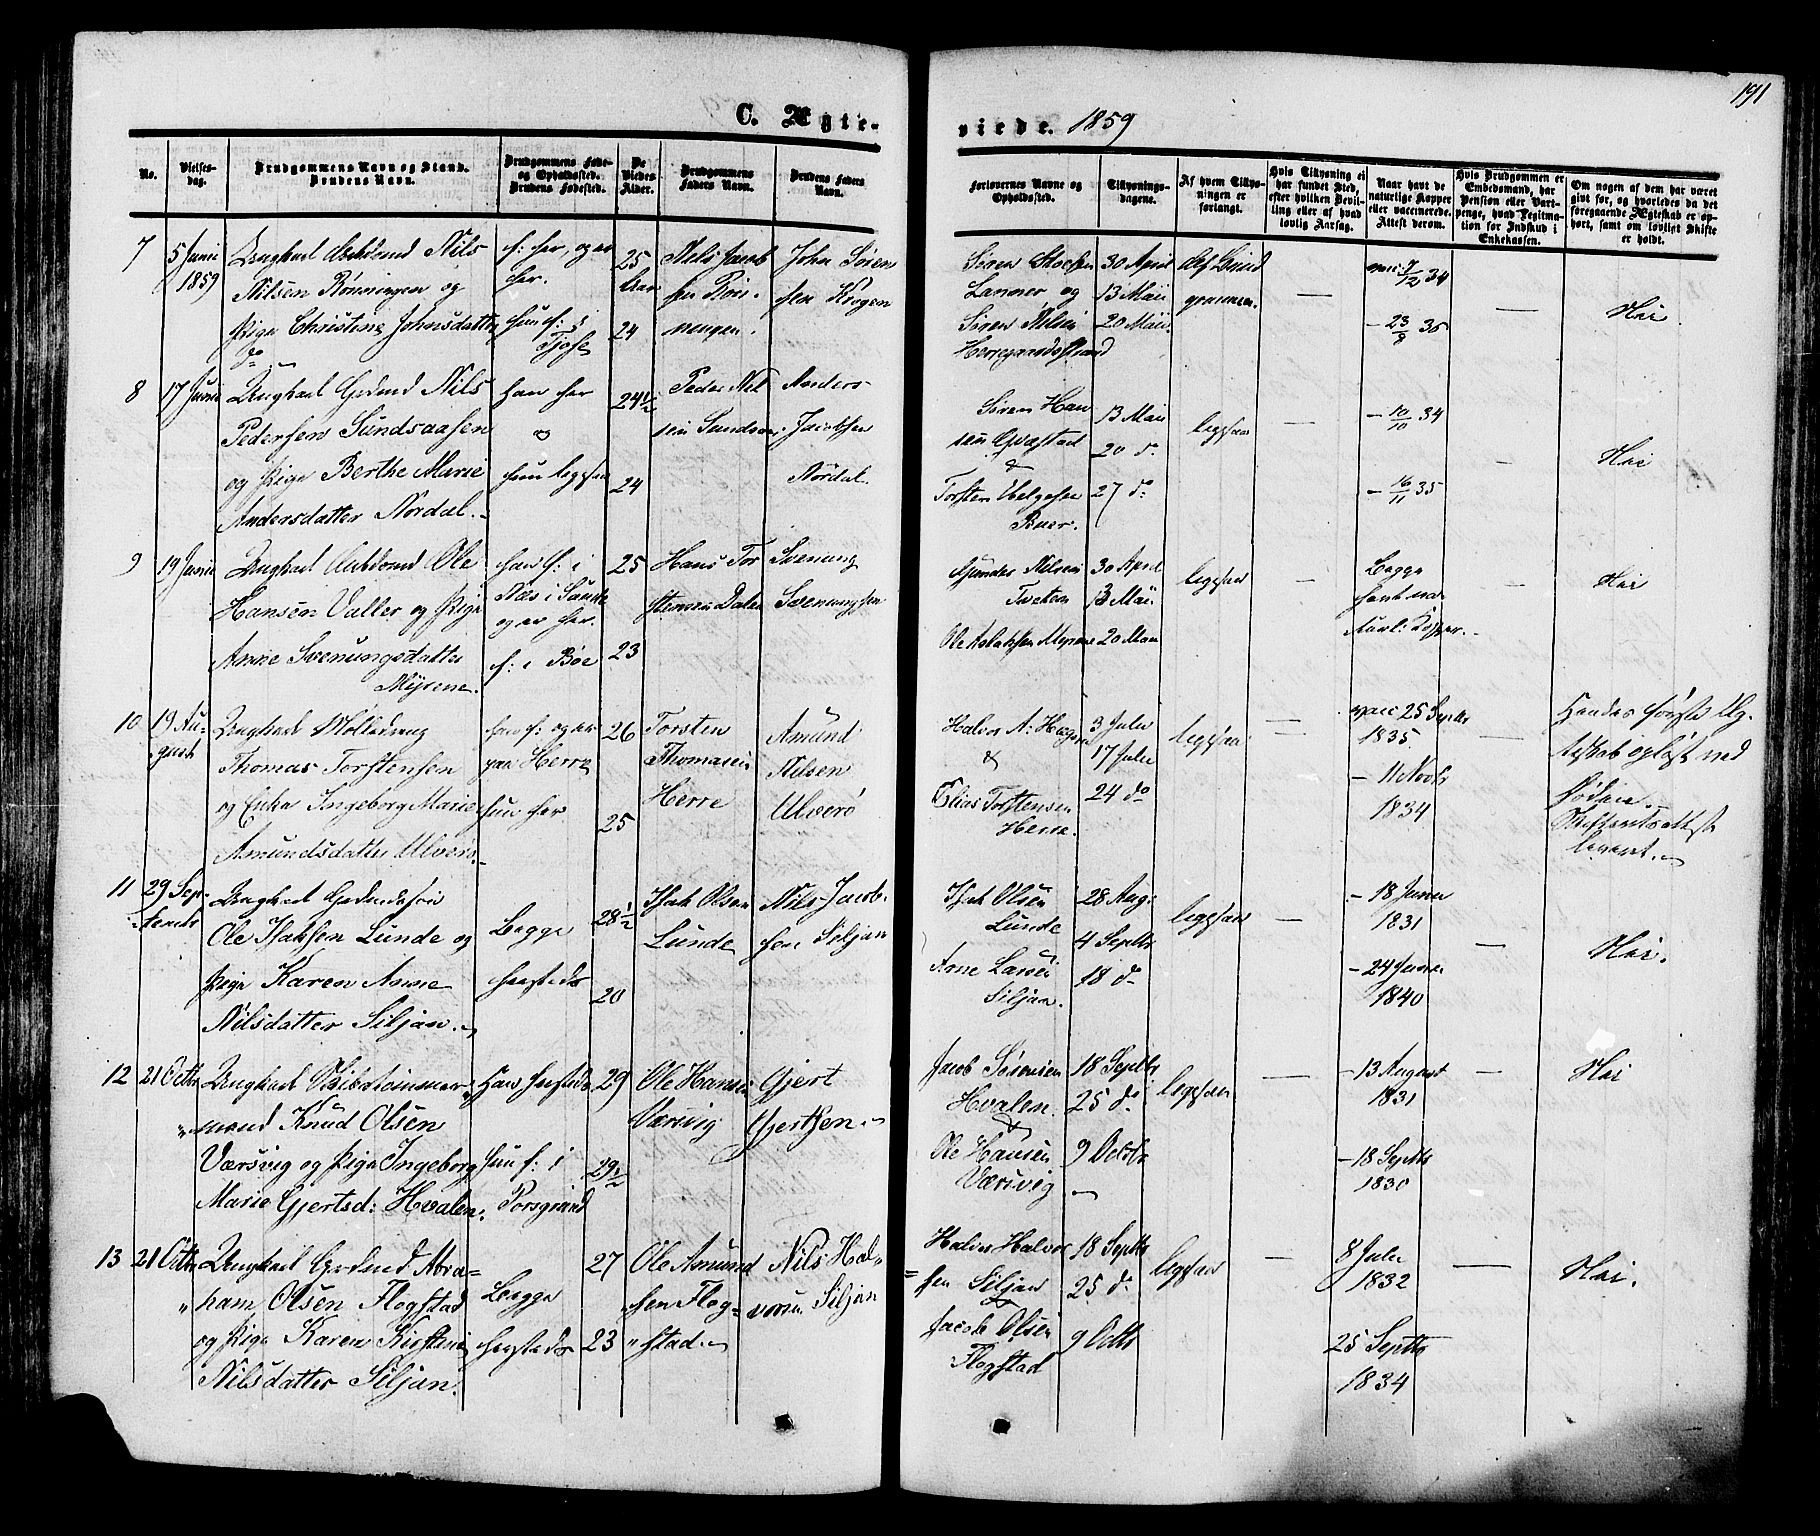 191
C. Ægte-
viede. 1859
No.
Vielses-
dag.
Brudgommens Navn og Stand.
Brudens Navn.
Brudgommens Føde-
og Opholdssted.
Brudens Fødested.
De
Viedes
Alder.
Brudgommens
Faders Navn.
Brudens Faders
Navn.
Forlovernes Navne og
Opholdssted.
Tillysnings-
dagene.
Af hvem Tillys-
ningen er
forlangt.
Hvis Tillysning ei
har fundet Sted,
efter hvilken Bevil-
ling eller af hvad
lovlig Aarsag.
Naar havt de
naturlige Kopper
eller vaccinerede.
Attest derom.
Hvis Brudgommen er
Embedsmand, har
Pension eller Vart-
penge, hvad Legitima-
tion for Indskud i
Enkekassen.
Om nogen af dem har været
givt før, og hvorledes da det
foregaaende Ægteskab er op-
hørt, samt om lovligt Skifte
er holdt.
7
5 Juni
1859
Ungkarl Arbdmd Nils
Nilsen Rønningen og
Pige Christine Johnsdatter
do
f: her, og er
her.
hun f: i
Tjose
25
Aar
24
Nels Jacob
sen Røn-
ningen.
John Søren
sen Krogen
Søren
Lanner og
Søren Nilsen
Herregaardsstrand
30 April
13 Maii
20 Maii
af Brud
gommen.
—
vacc 7/2 34
- 23/8 35
—
Nei.
8
17 Juni
Ungkarl Grdmd Nils
Pedersen Sundsaasen
og Pige Berthe Marie
Andersdatter Nordal.
han her
og
hun ligesaa
24½
24
Peder Nil
sen Sundsaa.
Anders
Jacobsen
Nordal.
Søren Han
sen Qvæstad
&
Torsten
Buer.
13 Maii
20 do
27 do
ligesaa
—
- 10/10 34
- 16/11 35
—
Nei
9
19 Juni
Ungkarl Arbdmd Ole
Hansen Valler og Pige
Anne Svenungsdatter
Myrene.
han f: i
Næs i Saude
og er her.
f: i Bøe
25
23
Hans Tor
stensen Dalen
Svenung
Svenungsen
Amundes Nilsen
Tveten
Ole Aslaksen Myrene
30 April
13 Maii.
20 Maii
ligesaa
—
Begge
havt na
turl: Kopper.
—
Nei
10
19 Au-
gust
Ungkarl Mølledreng
Thomas Torstensen
og Enke Ingeborg Marie
Amundsdatter Ulverø.
han f: og er
paa Herre
hun her
26
25
Torsten
Thomasen
Herre
Amund
Nilsen
Ulverø
Halvor A:
&
Elias Torstensen
Herre.
3 Julii
17 Julii
24 do
ligesaa
—
vacc 25 Septbr
1835.
- 11 Novbr
1834
Hendes første Æg-
teskab opløst ved
Døden.
Skifteretsattest
leveret.
11
29 Sep-
tembr
Ungkarl Grdmdssøn
Ole Isaksen Lunde og
Pige Karen Anne
Nilsdatter Siljan.
Begge
hersteds
28½
20
Isak Olsen
Lunde
Nils Jacob-
sen Siljan
Isak Olsen
Lunde
Arne Larsen
Siljan.
28 Aug:
4 Septbr
18 do
ligesaa
—
- 18 Junii
1831
- 24 Junii
1840
—
Nei.
12
21 Octbr
Ungkarl Skibstømmer-
mand Knud Olsen
Værsvig og Pige Ingeborg
Marie Gjertsd: Hvalen.
Han hersteds
hun f: i
Porsgrund
29
29½
Ole Hansen
Værsvig
Gjert
Gjertsen.
Jacob Sørensen
Hvalen.
&
Ole Hansen
Værsvig
18 Septbr
25 do
9 Octobr
ligesaa
—
- 13 August
1831
- 18 Septbr
1830
Nei
13
21 Octbr
Ungkarl Grdmd Abra-
ham Olsen Flogstad
og Pige Karen Kirstine
Nilsdatter Siljan.
Begge
hersteds
27
23
Ole Amund
sen Flog-
stad.
Nils Hal-
vorsen Siljan
Halvor Halvor
sen Siljan
&
Jacob Olsen
Flogstad
18 Septbr
25 do
9 Octbr
ligesaa
—
8 Julii
1832
25 Septbr
1834
—
Nei.